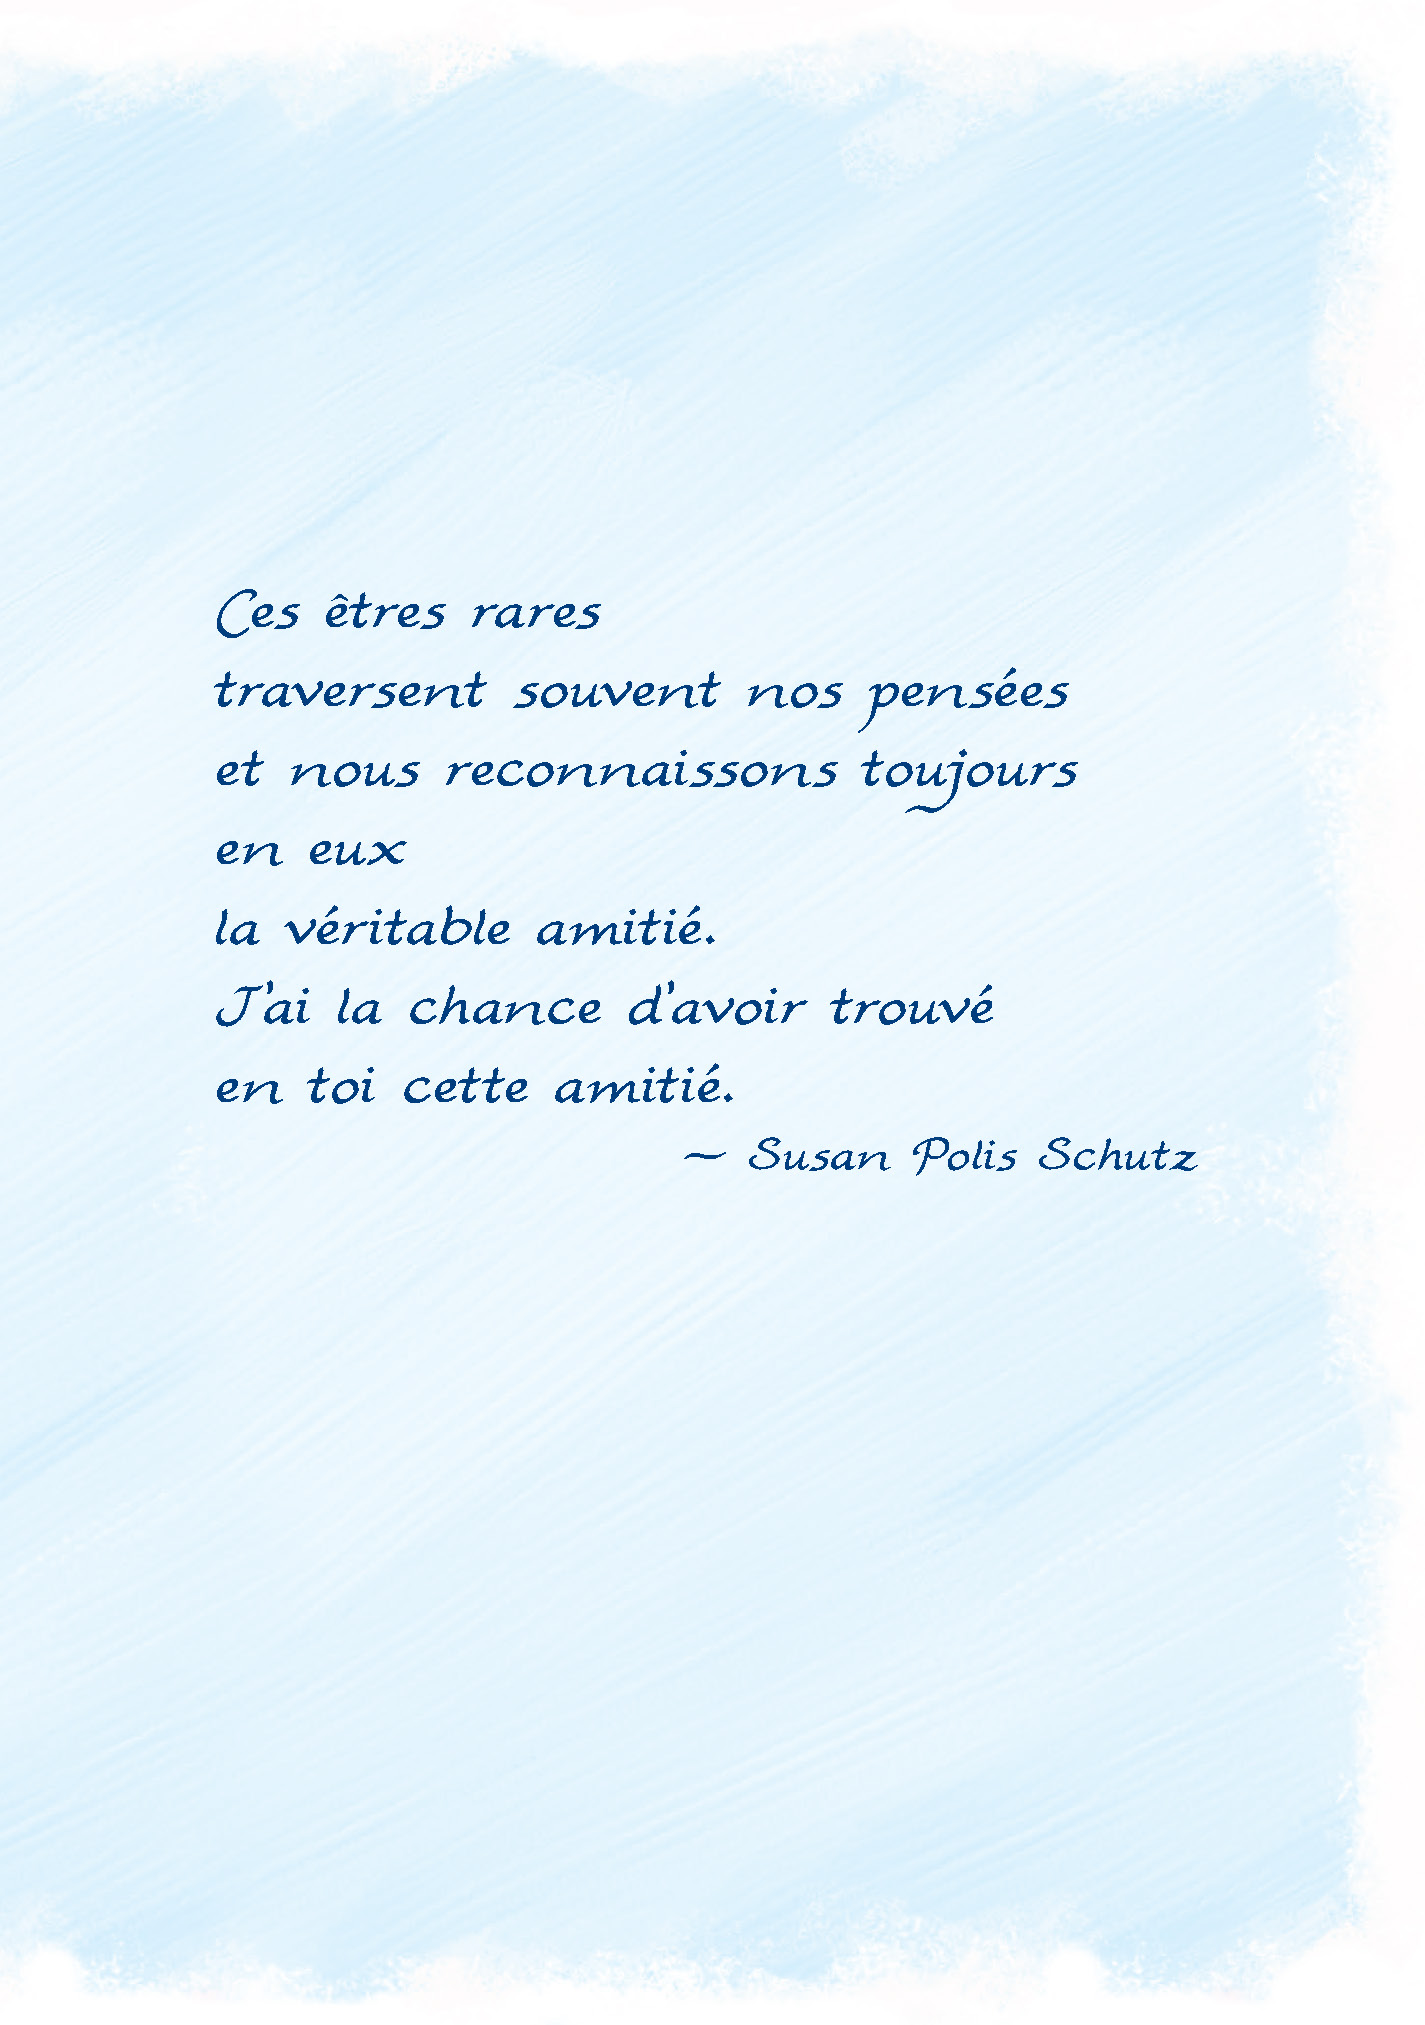 Ces êtres rares
traversent souvent nos pensées
et nous reconnaissons toujours
en eux
la véritable amitié.
J'ai la chance d'avoir trouvé
en toi cette amitié.
~ Susan Polis Schutz